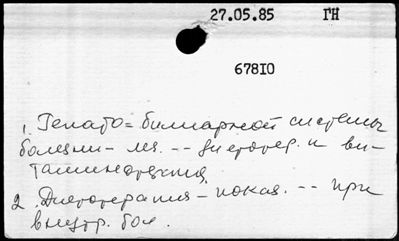 27.05.85 ГН
67810
1. Гепато-билиарной системы
болезни - леч. -- диетотер. и ви-
таминотерапия
2. Диетотерапия - показ. -- при
внутр. бол.